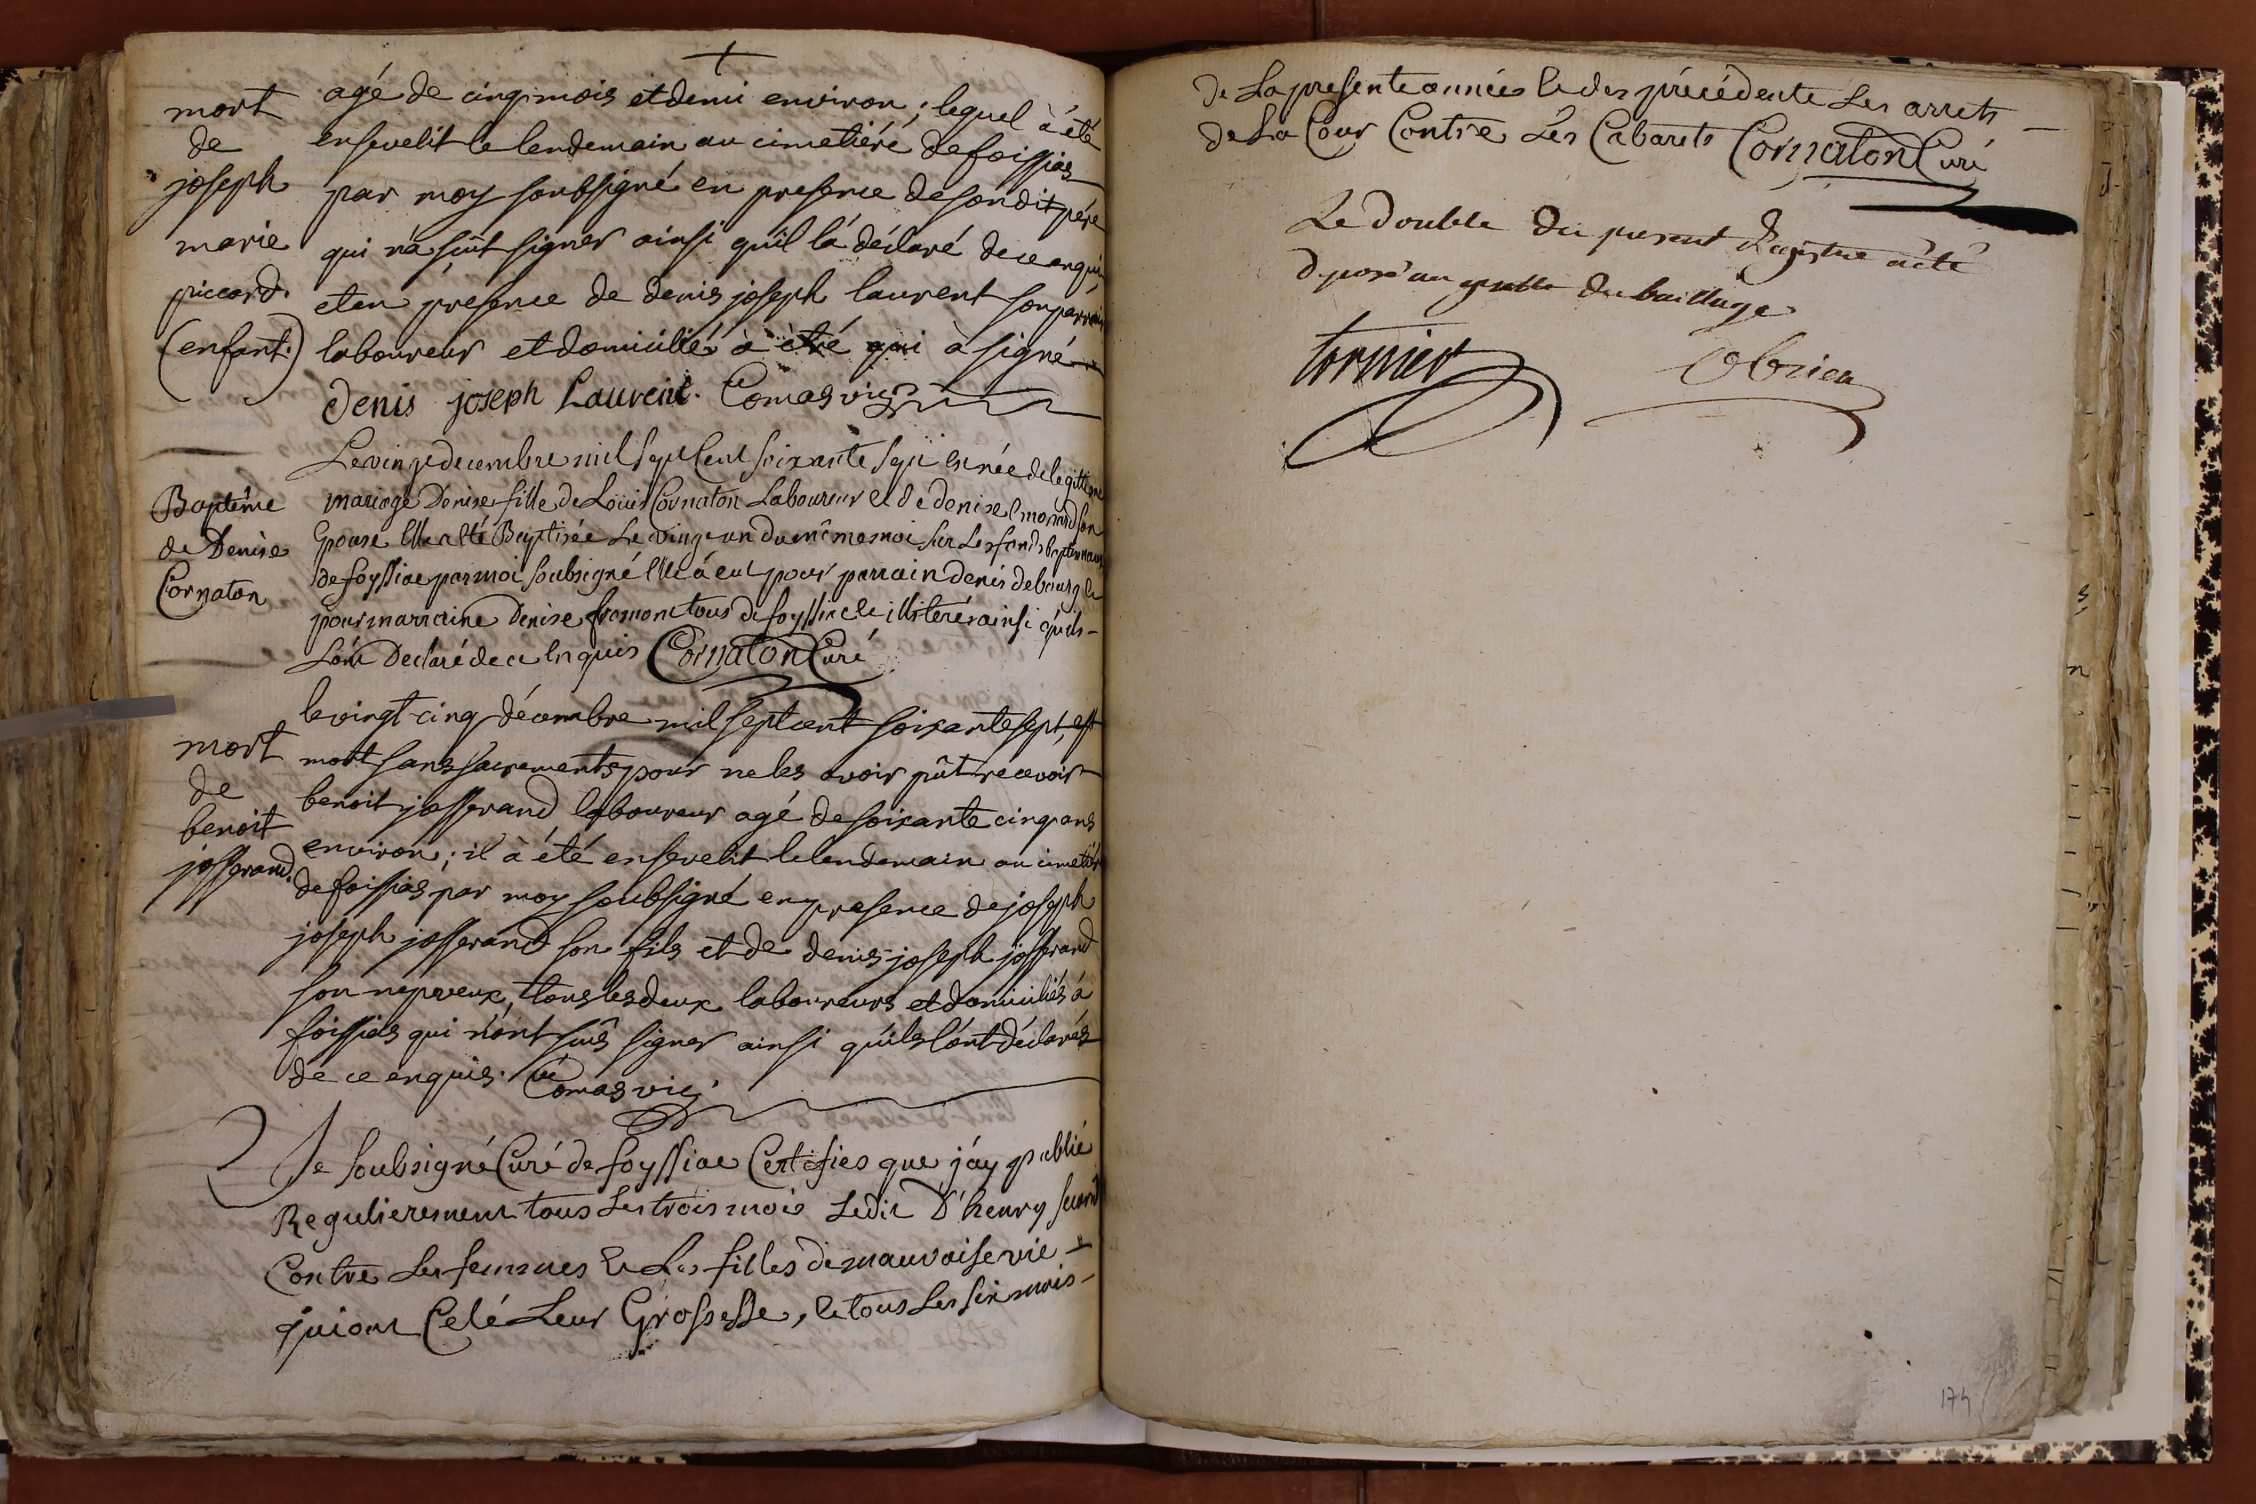 mort
de
joseph
marie
piccard.
(enfant.)
agé de cinq mois et demi environ; lequel à été
ensevelit le lendemain au cimetiéré de foissias
par moy soubsigné en presence de son dit pére
qui n'a sut signer ainsi qu'il l'à déclaré de ce enquis,
et en présence de denis joseph laurent son parrain
laboureur et domicilié à étré qui a signé
Denis joseph Laurent. Comas vic;
Baptême
de Denise
Cornaton
Le vingt decembre mil sept Cent soixante sept est née de legittime
mariage Denise fille de Loüis Cornaton Laboureur et de denise Emorard son
Epouse Elle a été Baptisée Le vingt un du même moi sur Les fonds baptismaux
de foyssiac par moi soubsigné Elle à eut pour parrain denis debourg et
pour marraine Denise fromont tous de foyssiac et illiterés ainsi qu'ils
L'ont Declaré de ce Enquis Cornaton Curé
mort
de
benoit
josserand.
le vingt-cinq décembre mil sept cent soixante sept, est
mort sans sacrements pour ne les avoir pût recevoir
benoit josserand laboureur agé de soixante cinq ans
environ; il à été ensevelit le lendemain au cimetiér
de foissias par moy soubsigné en presence de joseph
joseph josserand son fils et de denis-joseph josserand
son nepveux, tous les deux laboureurs et domiciliés à
foissias qui n'ónt sûs signer ainsi qu'ils l'ont déclarés
de ce enquis. Comas vic;
Je soubsigné Curé de foyssiac Certifies que j'ay publié
Regulierement tous Les trois mois Ledit D'henry second
Contre Les femmes et Les filles de mauvaise vie
qui ont Celé Leur Grossesse, et tous Les six mois
de La presente année et des précédente Les arrets
de La Cour Contre Les Cabarets Cornaton Curé
Le double du present Registre a été
deposé au greffe du bailliage
tornier
Obrien
174